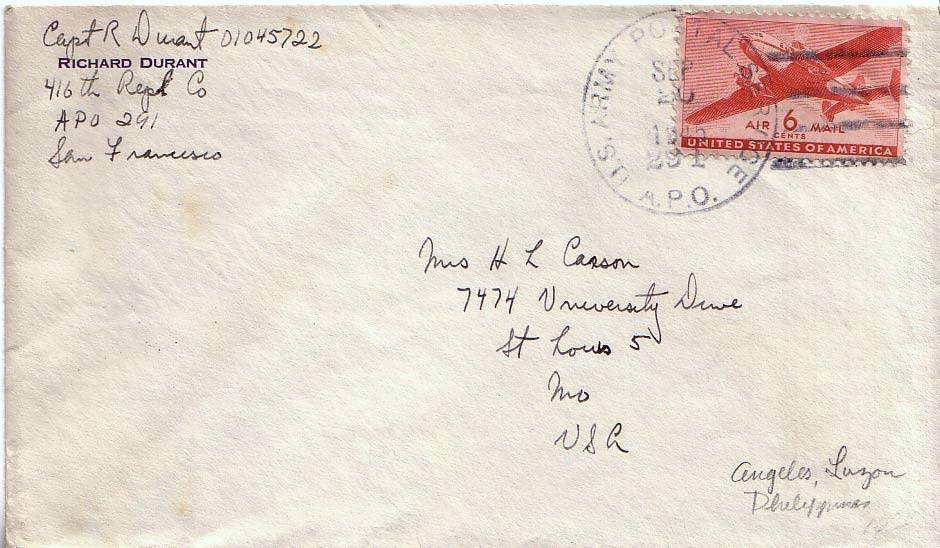 Capt R Durant 01045722
RICHARD DURANT
416th Repl Co
APO 291
San Francisco
U.S. ARMY POSTAL SERVICE
SEP
1945
291
A.P.O.
AIR 6 MAIL
CENTS
UNITED STATES OF AMERICA
Mrs H L Carson
7474 University Drive
St Louis 5
Mo
USA
Angeles, Luzon
Philippines